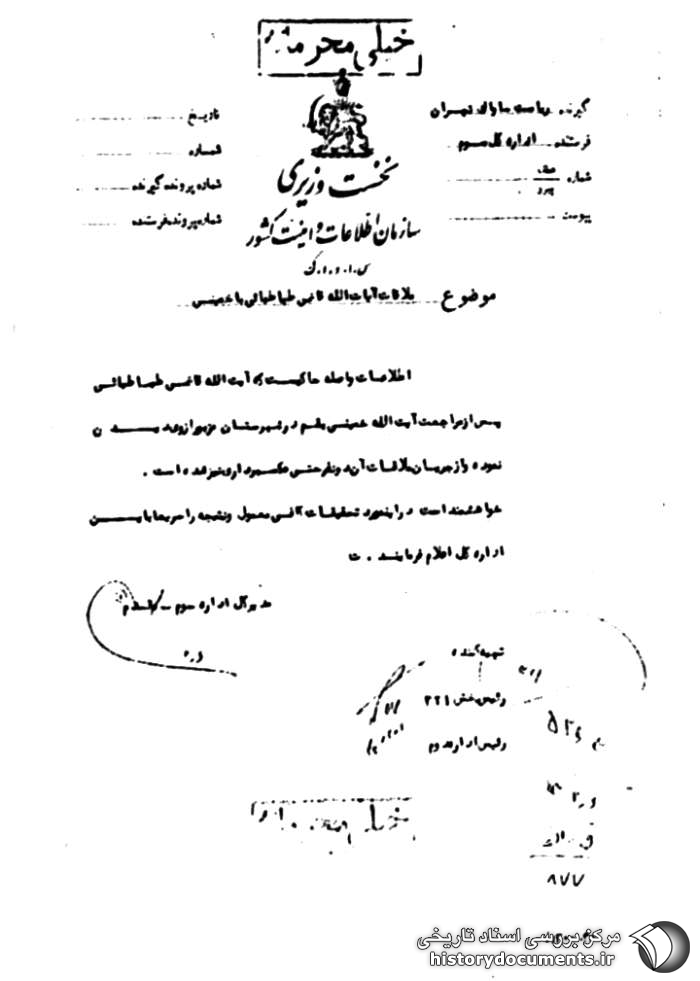 خیلی محرمانه
گیرنده ریاست ساواک تهران
فرستنده اداره کل سوم
شماره
پیوست
تاریخ
شماره
شماره پرونده گیرنده
شماره پرونده فرستنده
نخست وزیری
سازمان اطلاعات و امنیت کشور
س.ا.و.ا.ک
موضوع ملاقات آیات الله قائمی طباطبائی با خمینی
اطلاعات واصله حاکیست که آیت الله قاضی طباطبائی
پس از مراجعت آیت الله خمینی بقم در شهرستان مزبور از وی دیدن
نموده و از جریان ملاقات آن دو نفر حتی عکسبرداری نیز شده است .
خواهشمند است در اینمورد تحقیقات کافی معمول و نتیجه را سریعا باین
اداره کل اعلام فرمایند . ت
مدیرکل اداره سوم
تهیه کننده
رئیس بخش ۳۲۱
رئیس اداره دوم
خیلی محرمانه
۸۷۷
مرکز بررسی اسناد تاریخی
historydocuments.ir